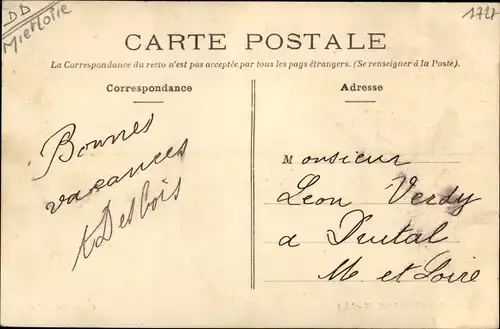 DD
M et Loire
CARTE POSTALE
La Correspondance du recto n'est pas acceptée par tous les pays étrangers. (Se renseigner à la Poste).
Correspondance
Bonnes
vacances
ADesbois
Adresse
Monsieur
Leon Verdy
a Durtal
M et Loire